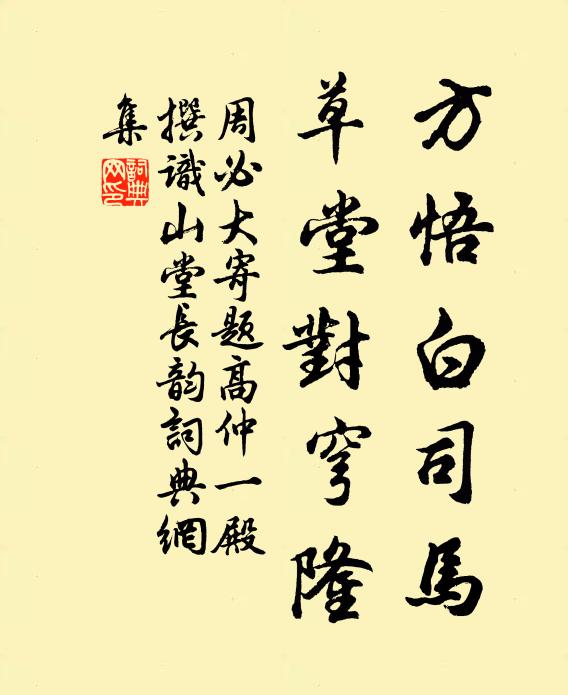 方悟白司馬
草堂對穹隆
周必大寄題高仲一殿
撰識山堂長韵詞典網
集
詞典
网印